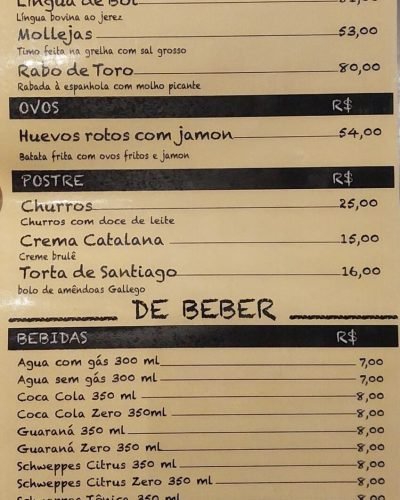 Língua de Boi
Língua bovina ao jerez
Mollejas 53,00
Timo feita na grelha com sal grosso
Rabo de Toro 80,00
Rabada à espanhola com molho picante
OVOS R$
Huevos rotos com jamon 54,00
Batata frita com ovos fritos e jamon
POSTRE R$
Churros 25,00
Churros com doce de leite
Crema Catalana 15,00
Creme brulê
Torta de Santiago 16,00
bolo de amêndoas Gallego
DE BEBER
BEBIDAS R$
Agua com gás 300 ml 7,00
Agua sem gás 300 ml 7,00
Coca Cola 350 ml 8,00
Coca Cola Zero 350ml 8,00
Guaraná 350 ml 8,00
Guaraná Zero 350 ml 8,00
Schweppes Citrus 350 ml 8,00
Schweppes Citrus Zero 350 ml 8,00
Schweppes Tônica 350 ml 8,00